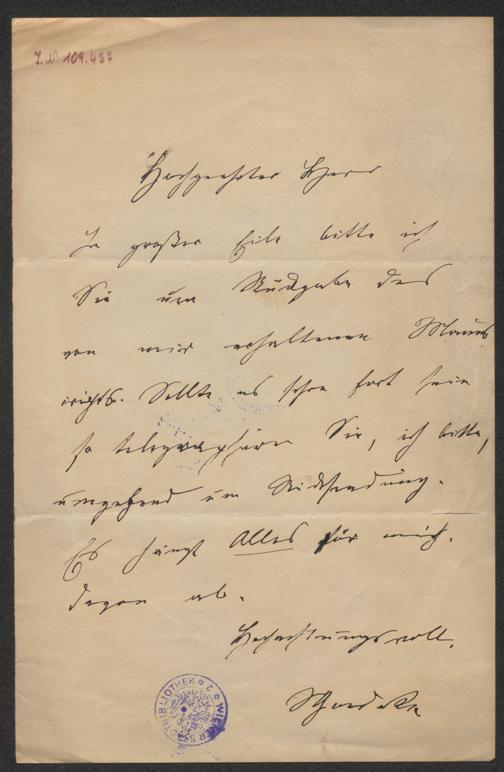 J.N. 109.437
Hochgeehrter Herr
In großer Eile bitte ich
Sie um Rückgabe des
von mir erhaltenen Manus
cripts. Sollte es schon fort sein
so telegraphieren Sie, ich bitte,
umgehend um Rücksendung.
Es hängt Alles für mich
davon ab.
Hochachtungsvoll,